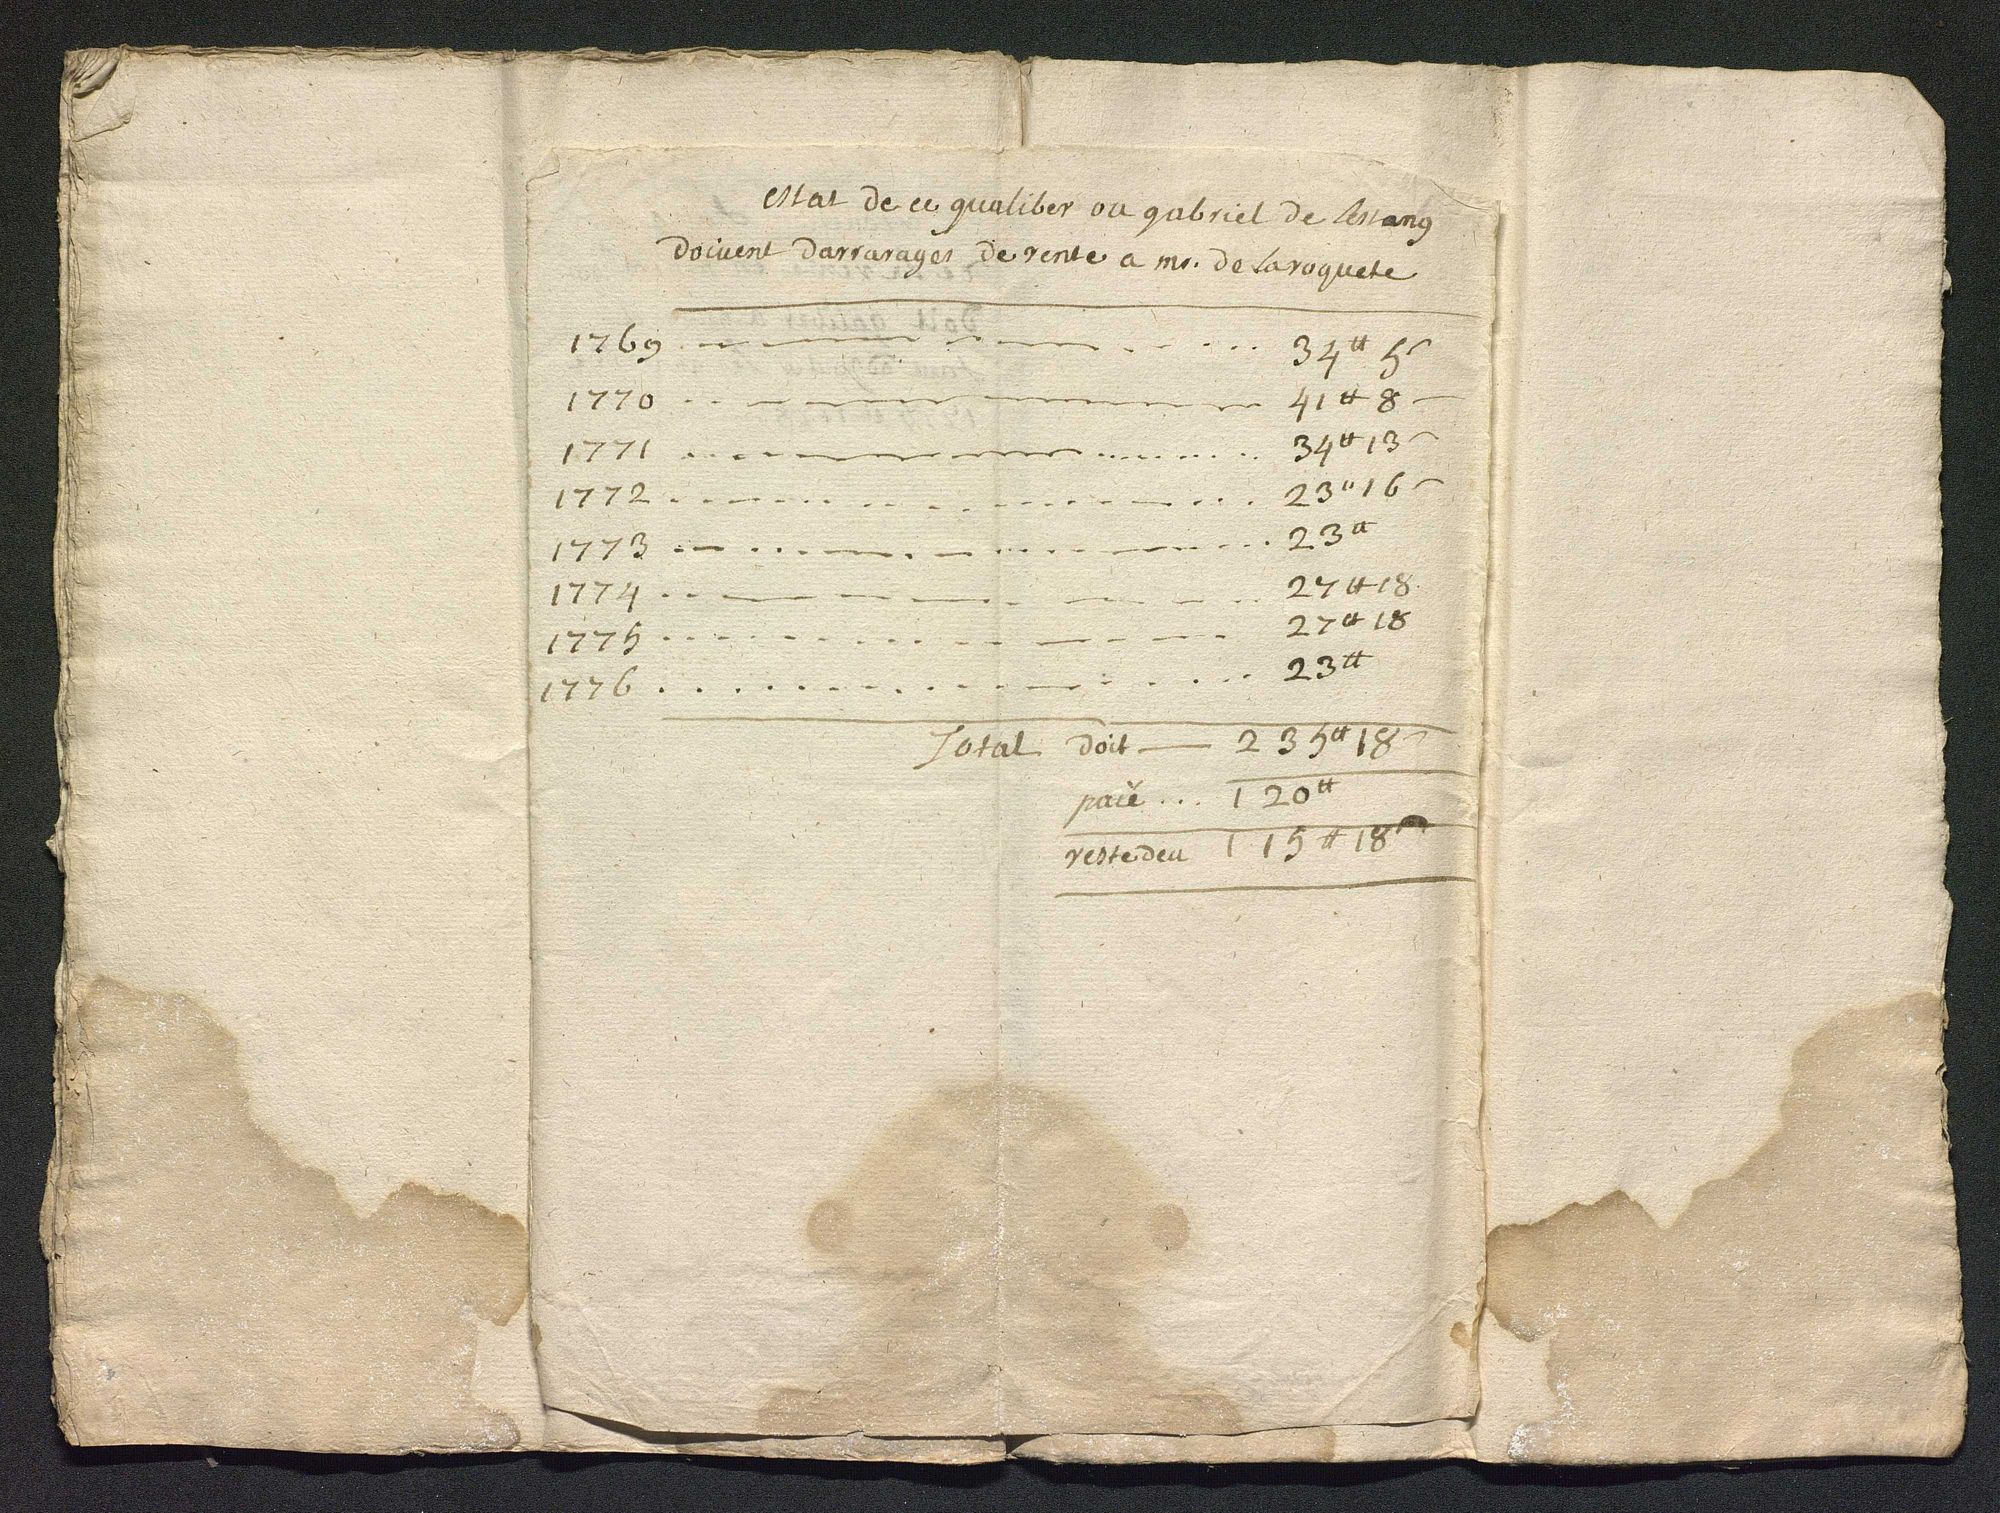 estat de ce qualiber ou gabriel de lestang
doivent darrarages de rente a mr. de laroquete
1769 34tt 5s
1770 41tt 8s
1771 34tt 13s
1772 23tt 16s
1773 23tt
1774 27tt 18
1775 27tt 18
1776 23tt
Total doit 235tt 18s
paié ... 120tt
reste deu 115tt 18s